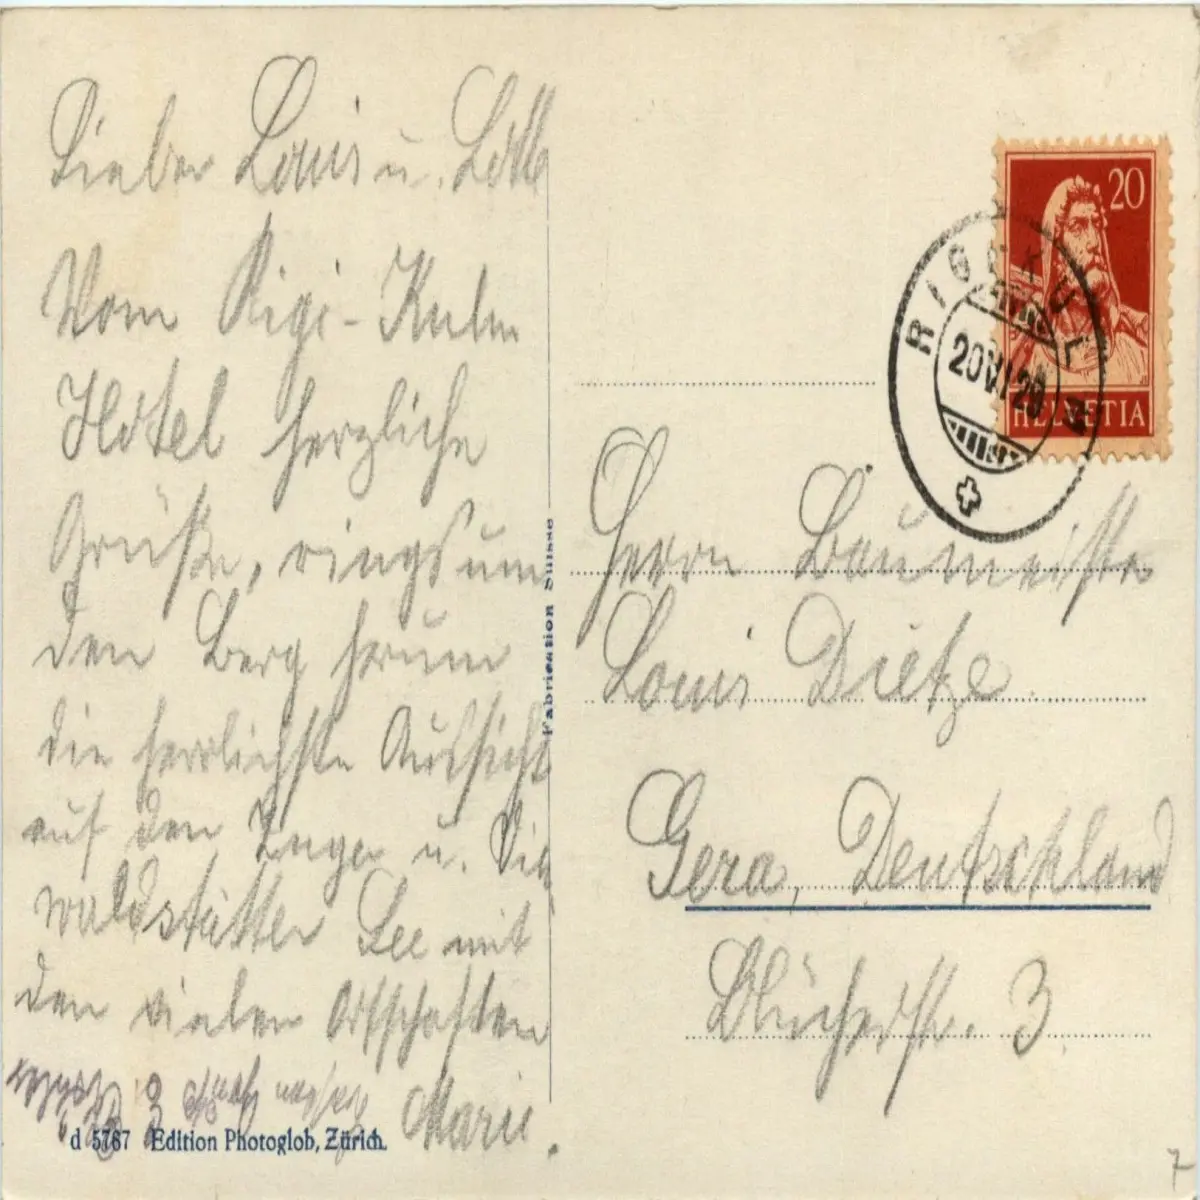 Lieber Louis u. Lotte
Vom Rigi-Kulm
Hotel herzliche
Grüße, ringsum
den Berg herum
die herrlichste Aussicht
auf den Zuger u. Vier
waldstätter See mit
den vielen Ortschaften
Marie.
d 5767 Edition Photoglob, Zürich.
Fabrication Suisse
20
HELVETIA
RIGI-KULM
20.VI.29
Herrn Baumeister
Louis Dietze
Gera, Deutschland
Blücherstr. 3.
7